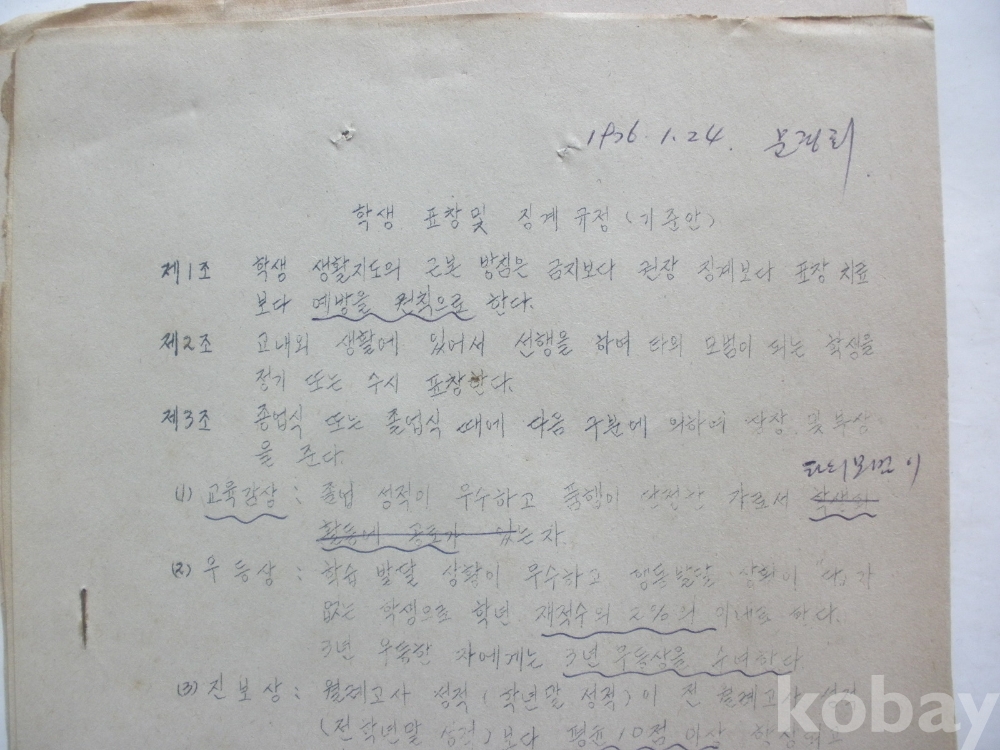 1976. 1. 24.
학생 표창및 징계 규정 (기준안)
제1조 학생 생활지도의 근본 방침은 금지보다 권장 징계보다 표창 치료
보다 예방을 원칙으로 한다.
제2조 교내외 생활에 있어서 선행을 하며 타의 모범이 되는 학생을
정기 또는 수시 표창한다.
제3조 종업식 또는 졸업식 때에 다음 구분에 의하여 상장 및 부상
을 준다.
타의 모범이
(1) 교육감상 : 졸업 성적이 우수하고 품행이 단정한 자로서 학생회
활동에 공로가 있는자.
(2) 우등상 : 학습 발달 상황이 우수하고 행동발달 상황이 "다"가
없는 학생으로 학년 재적수의 2%의 이내로 한다.
3년 우등한 자에게는 3년 우등상을 수여한다
(3) 진보상 : 월례고사 성적 (학년말 성적)이 전 월례고사 성적
(전학년말 성적) 보다 평균 10점 이상
kobay